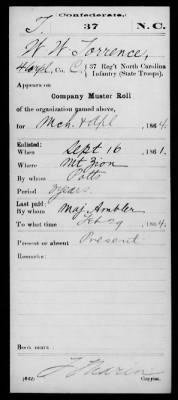 Confederate.
T. 37 N.C.
W W Torrence,
4 Corpl, Co. C, 37 Reg't North Carolina
Infantry (State Troops).
Appears on
Company Muster Roll
of the organization named above,
for Mch. & Apl, 1864.
Enlisted:
When Sept 16, 1861.
Where Mt Zion
By whom Potts
Period 3 years.
Last paid:
By whom Maj. Ambler
To what time Feb 29, 1864.
Present or absent Present
Remarks:
Book mark:
(642) Copyist.